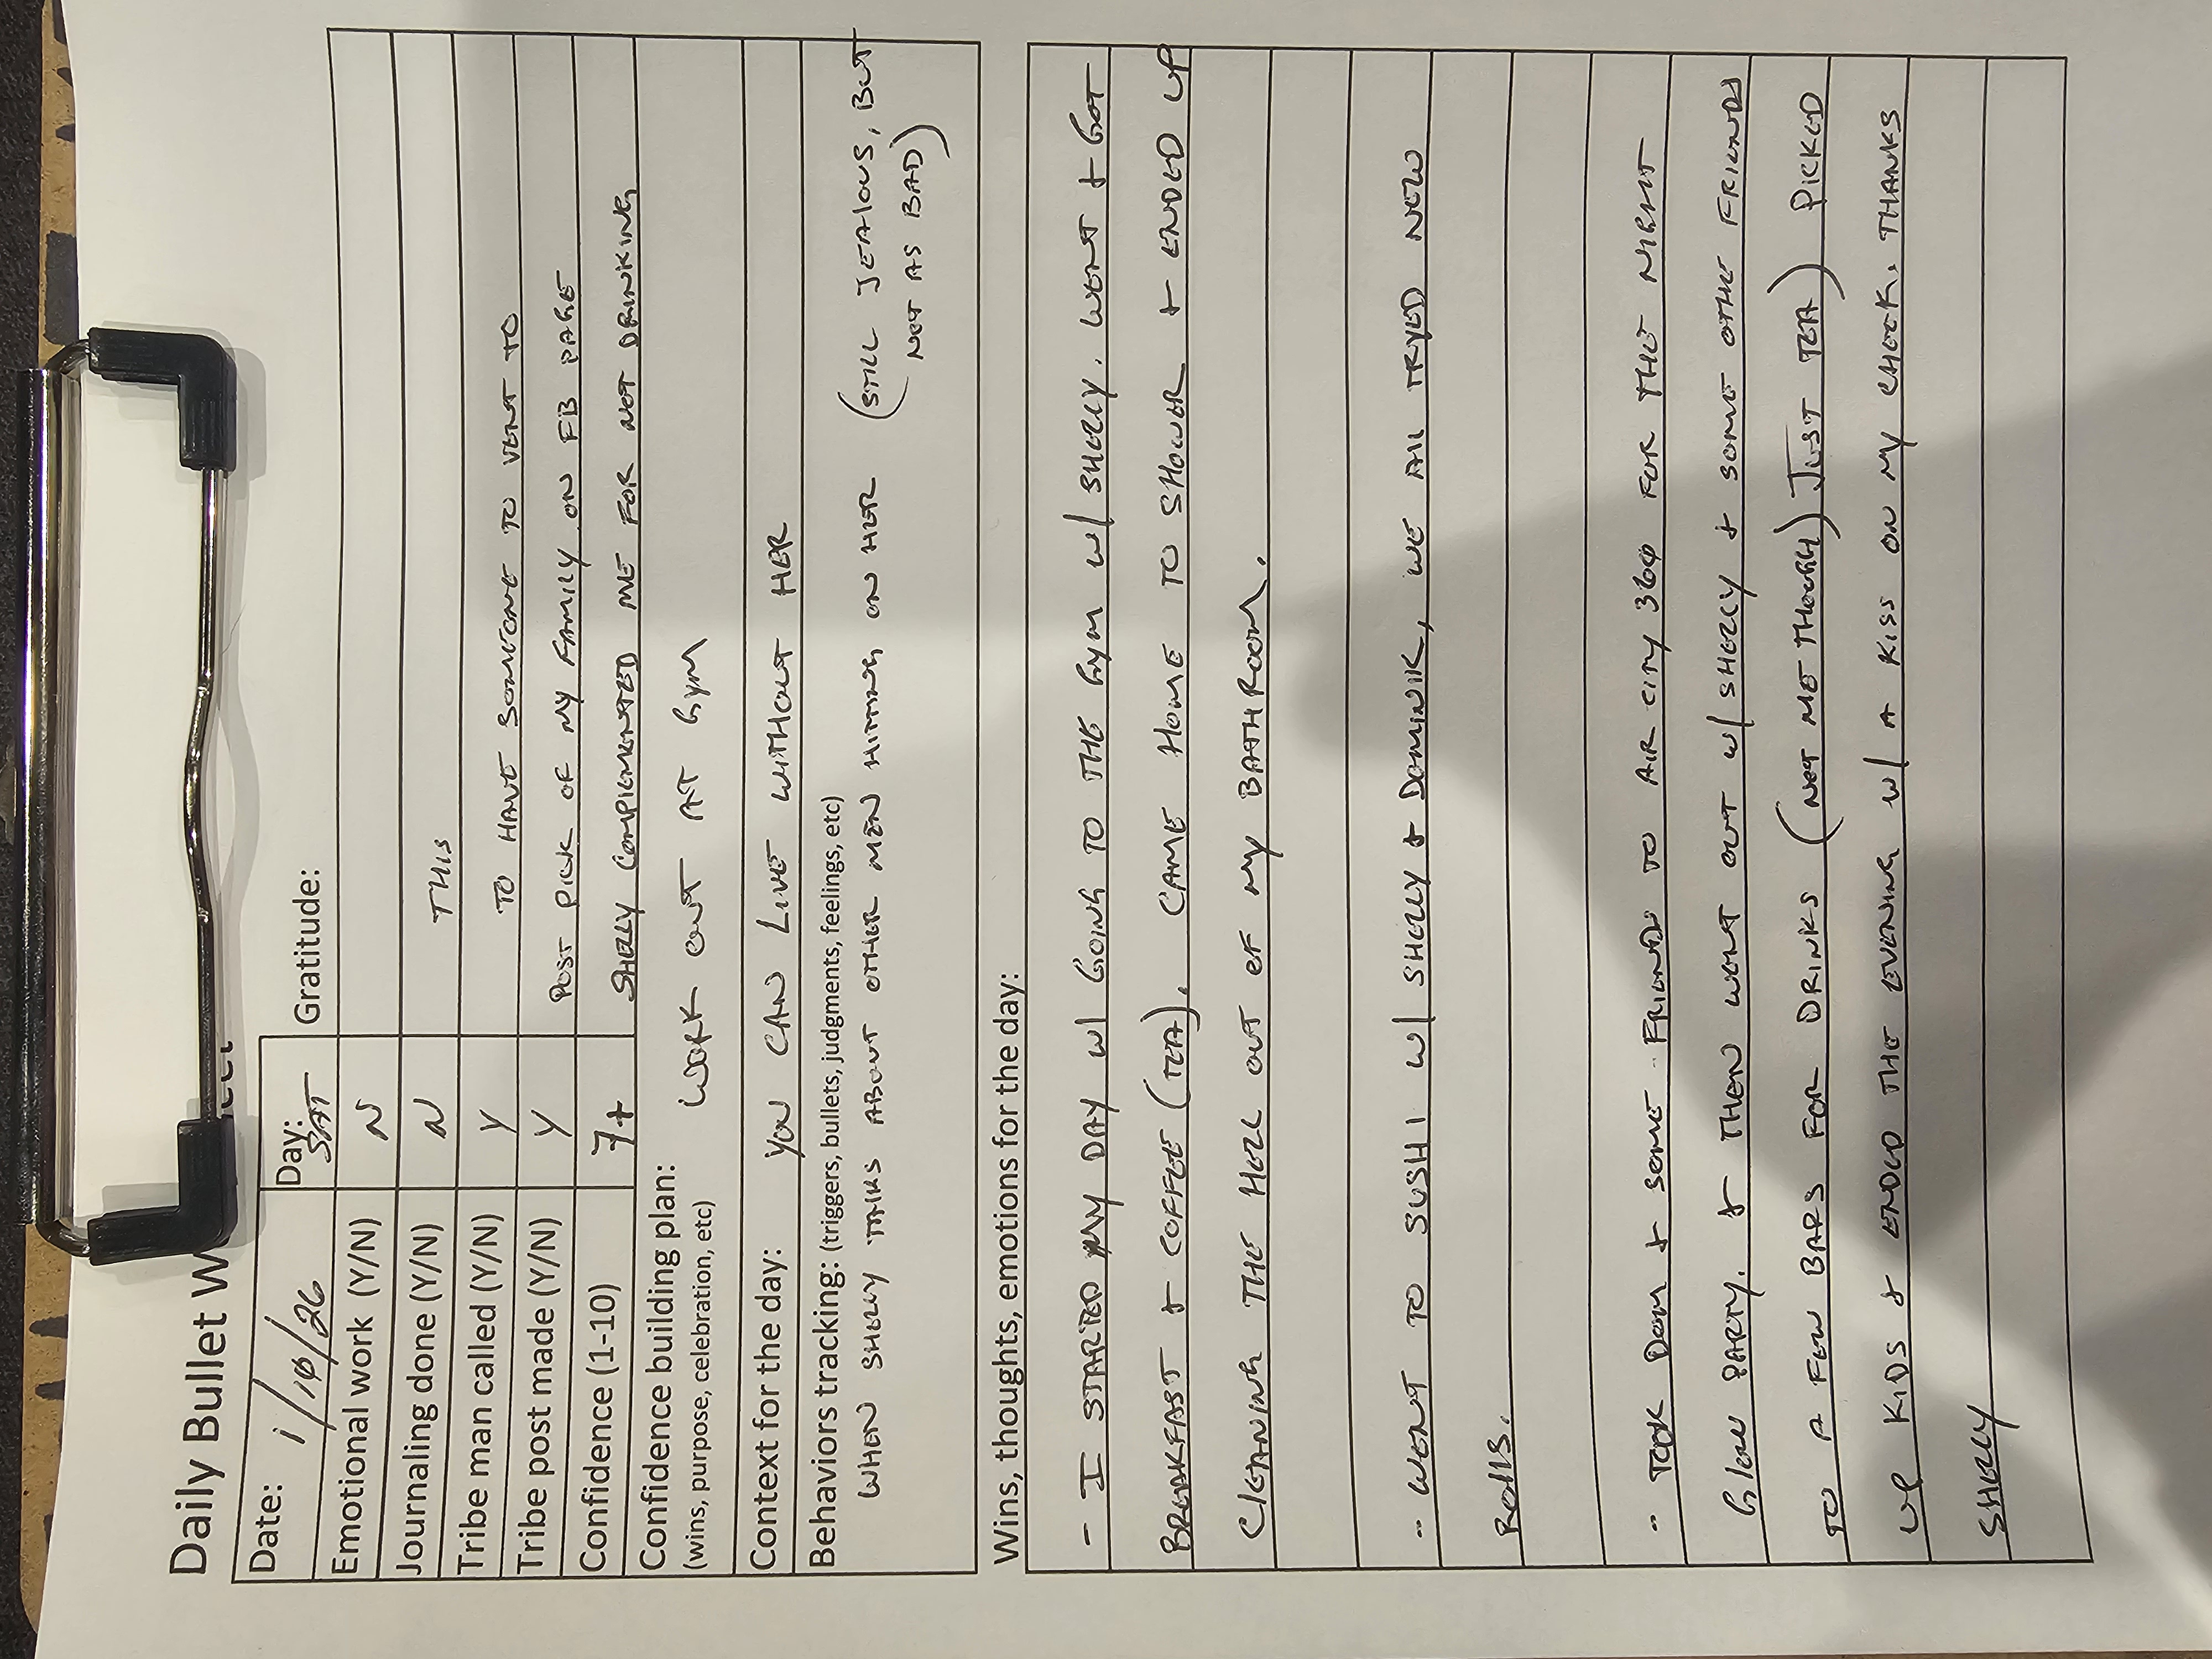 Daily Bullet W
Date: 1/10/26 Day: SAT Gratitude:
Emotional work (Y/N) N
Journaling done (Y/N) N THIS
Tribe man called (Y/N) Y TO HAVE SOMEONE TO VENT TO
Tribe post made (Y/N) Y POST PICK OF MY FAMILY ON FB PAGE
Confidence (1-10) 7+ SHELLY COMPLEMENTED ME FOR NOT DRINKING
Confidence building plan: WORK OUT AT GYM
(wins, purpose, celebration, etc)
Context for the day: YOU CAN LIVE WITHOUT HER
Behaviors tracking: (triggers, bullets, judgments, feelings, etc)
WHEN SHELLY TALKS ABOUT OTHER MEN HITTING ON HER (STILL JEALOUS, BUT
NOT AS BAD)
Wins, thoughts, emotions for the day:
- I STARTED MY DAY W/ GOING TO THE GYM W/ SHELLY. WENT + GOT
BREAKFAST + COFFEE (TEA). CAME HOME TO SHOWER + ENDED UP
CLEANING THE HELL OUT OF MY BATHROOM.
- WENT TO SUSHI W/ SHELLY & DOMINIK, WE ALL TRYED NEW
ROLLS.
- TOOK DOM + SOME FRIENDS TO AIR CITY 360 FOR THE NIGHT
GLOW PARTY. & THEN WENT OUT W/ SHELLY & SOME OTHE FRIENDS
TO A FEW BARS FOR DRINKS (NOT ME THOUGH) JUST TEA) PICKED
UP KIDS & ENDED THE EVENING W/ A KISS ON MY CHEEK. THANKS
SHELLY